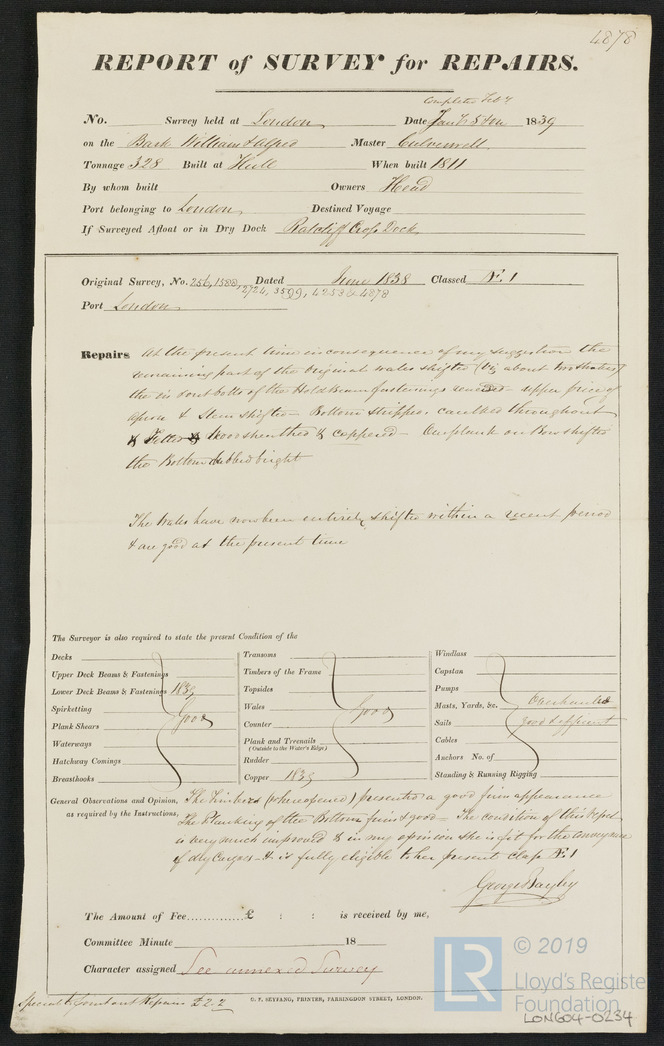 4878
REPORT of SURVEY for REPAIRS.
Completed Feb 7
No. Survey held at London Date Jany 1839
on the Bark William & Alfred Master Culverwell
Tonnage 328 Built at Hull When built 1811
By whom built Owners Head
Port belonging to London Destined Voyage
If Surveyed Afloat or in Dry Dock Ratcliff Cross Dock
Original Survey, No. 256, 1588, Dated June 1838 Classed Æ. 1
2724, 3599, 4253 & 4878
Port London
Repairs At the present time in consequence of my suggestion the
remaining part of the original wales shifted (viz about two strakes)
the in & out bolts of the Hold Beam fastenings renewed - upper piece of
Apron & Stem shifted - Bottom stripped, caulked throughout
& Felted & coppered - One plank on Bow shifted
the Bottom dubbed bright
The Wales have now been entirely shifted within a recent period
& are good at the present time
The Surveyor is also required to state the present Condition of the
Decks
Upper Deck Beams & Fastenings
Lower Deck Beams & Fastenings 1839
Spirketting
Plank Shears
Waterways
Hatchway Comings
Breasthooks
Good
Transoms
Timbers of the Frame
Topsides
Wales
Counter
Plank and Treenails
(Outside to the Water's Edge)
Rudder
Copper 1839
Good
Windlass
Capstan
Pumps
Masts, Yards, &c.
Sails
Cables
Anchors No. of
Standing & Running Rigging
Overhauled
good & efficient
General Observations and Opinion, The Timbers (where opened) presented a good firm appearance
as required by the Instructions, The Planking of the Bottom firm & good - The condition of this Vessel
is very much improved & in my opinion she is fit for the conveyance
of dry Cargoes - & is fully eligible to her present class Æ 1
George Bayley
The Amount of Fee..............£ : : is received by me,
Committee Minute 18
Character assigned See annexed Survey
Special & Constant Repairs £2.2
C. F. SEYFANG, PRINTER, FARRINGDON STREET, LONDON.
LR
© 2019
Lloyd's Register
Foundation
LON604-0234